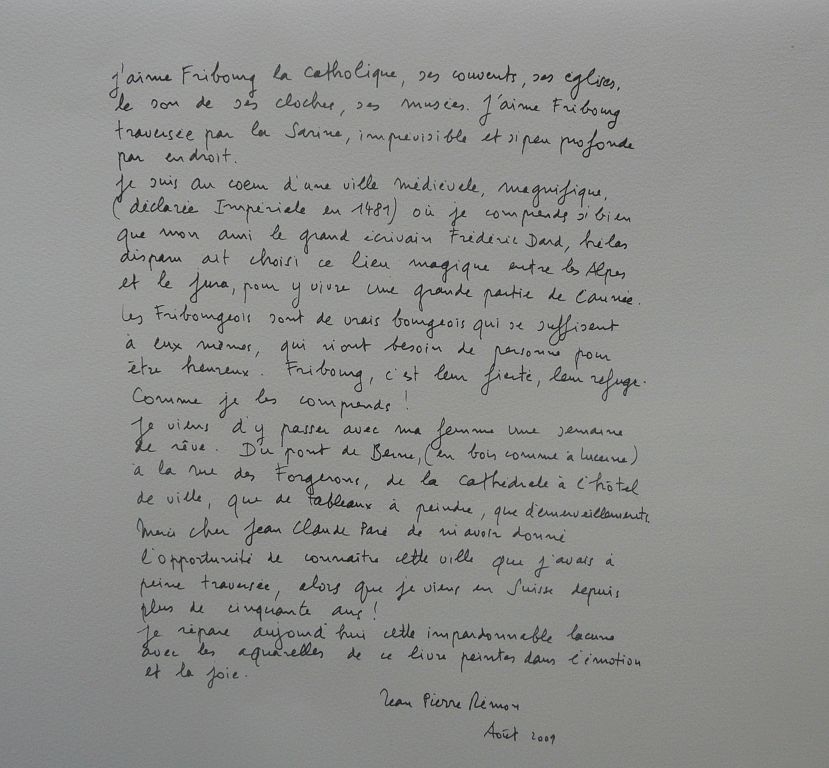 J'aime Fribourg la catholique, ses couvents, ses églises,
le son de ses cloches, ses musées. J'aime Fribourg
traversée par la Sarine, imprévisible et si peu profonde
par endroit.
Je suis au coeur d'une ville médiévale, magnifique,
(déclarée Impériale en 1481) où je comprends si bien
que mon ami le grand écrivain Frédéric Dard, hélas
disparu ait choisi ce lieu magique entre les Alpes
et le Jura, pour y vivre une grande partie de l'année.
Les Fribourgeois sont de vrais bourgeois qui se suffisent
à eux mêmes, qui n'ont besoin de personne pour
être heureux. Fribourg, c'est leur fierté, leur refuge.
Comme je les comprends !
Je viens d'y passer avec ma femme une semaine
de rêve. Du pont de Berne, (en bois comme à Lucerne)
à la rue des Forgerons, de la cathédrale à l'hôtel
de ville, que de tableaux à peindre, que d'émerveillements.
Merci cher Jean Claude de m'avoir donné
l'opportunité de connaître cette ville que j'avais à
peine traversée, alors que je viens en Suisse depuis
plus de cinquante ans !
Je répare aujourd'hui cette impardonnable lacune
avec les aquarelles de ce livre peintes dans l'émotion
et la joie.
Jean Pierre Rémon
Août 2009